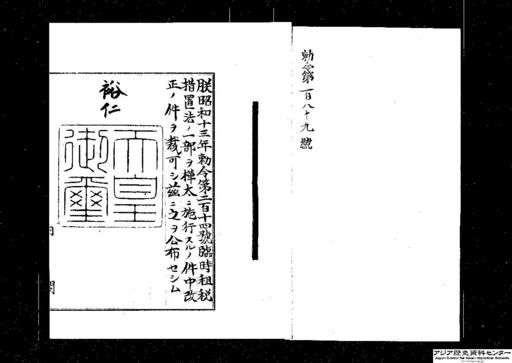 勅令第百八十九號
朕昭和十三年勅令第二百十四號臨時租税
措置法ノ一部ヲ樺太ニ施行スルノ件中改
正ノ件ヲ裁可シ茲ニ之ヲ公布セシム
裕仁
天皇
御璽
アジア歴史資料センター
Japan Center for Asian Historical Records